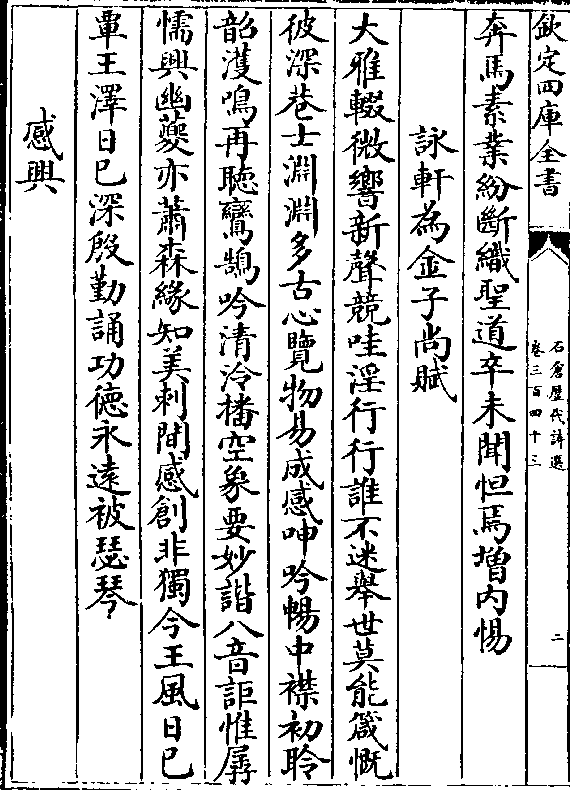 欽定四庫全書
石倉歷代詩選
卷三百四十三
二
奔馬素業紛斷織聖道卒未聞怛焉增內惕
詠軒為金子尚賦
大雅輟微響新聲競哇淫行行誰不迷舉世莫能箴慨
彼深巷士淵淵多古心覽物易成感呻吟暢中襟初聆
韶濩鳴再聽鸞鵠吟清泠播空象要妙諧八音詎惟孱
懦興幽夔亦蕭森緣知美刺間感創非獨今王風日已
覃王澤日已深殷勤誦功德永遠被瑟琴
感興